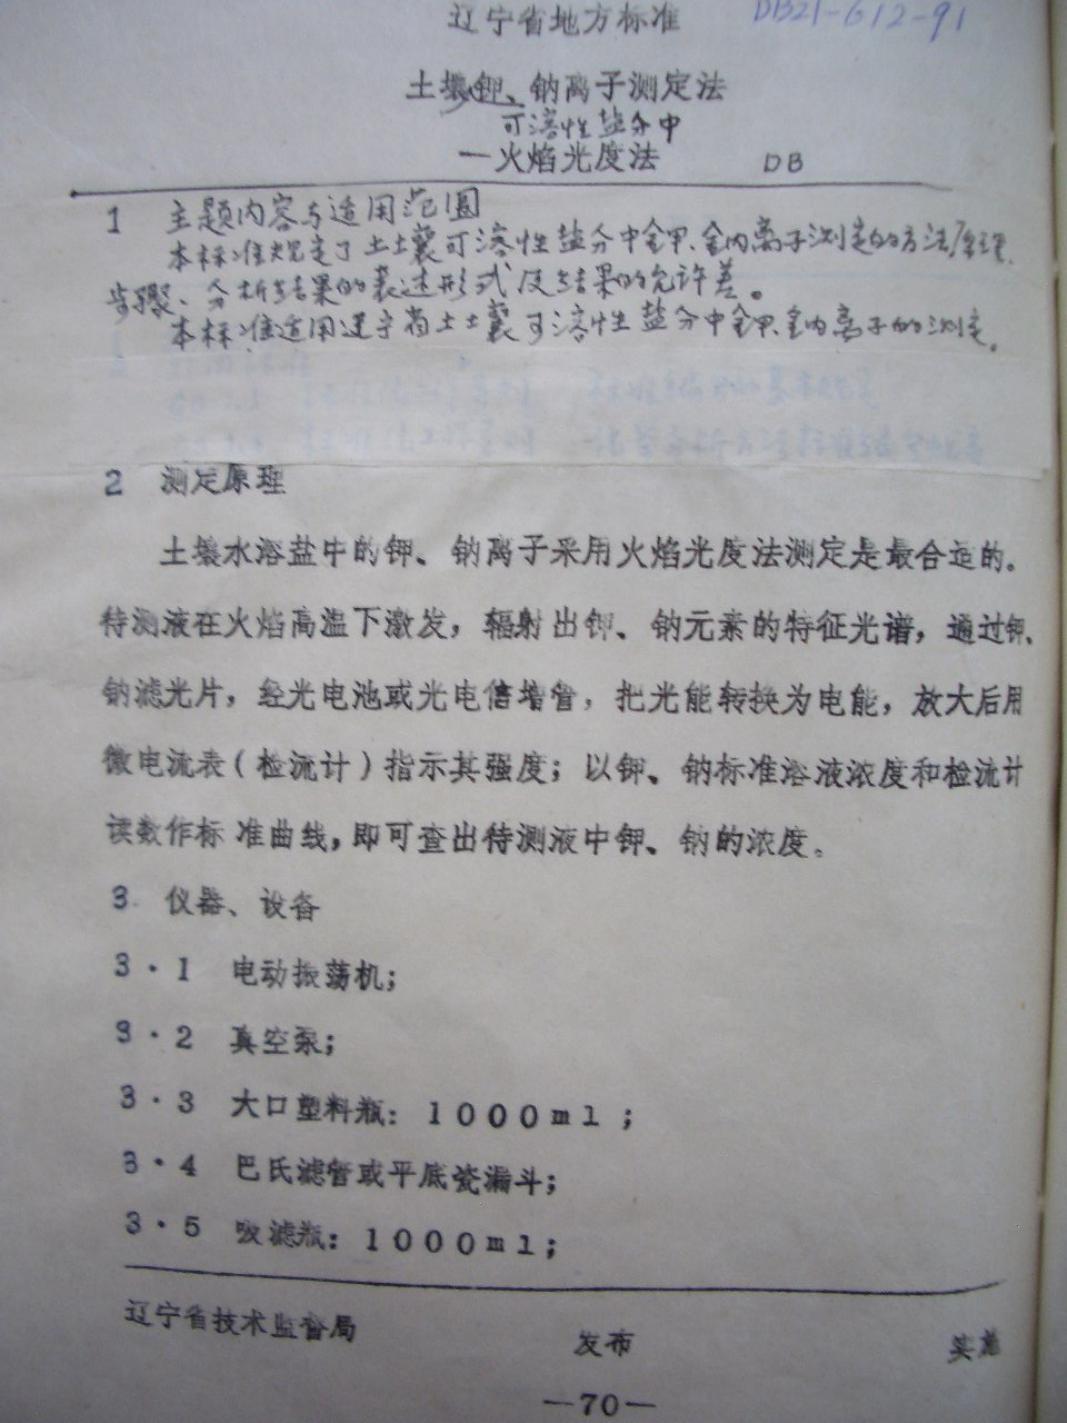 辽宁省地方标准 DB21-612-91
土壤钾、钠离子测定法
可溶性盐分中
—火焰光度法 DB
1 主题内容与适用范围
本标准规定了土壤可溶性盐分中钾、钠离子测定的方法原理、
步骤、分析结果的表述形式及结果的允许差。
本标准适用辽宁省土壤可溶性盐分中钾、钠离子的测定。
2 测定原理
土壤水溶盐中的钾、钠离子采用火焰光度法测定是最合适的。
待测液在火焰高温下激发，辐射出钾、钠元素的特征光谱，通过钾、
钠滤光片，经光电池或光电倍增管，把光能转换为电能，放大后用
微电流表（检流计）指示其强度；以钾、钠标准溶液浓度和检流计
读数作标准曲线，即可查出待测液中钾、钠的浓度。
3 仪器、设备
3·1 电动振荡机；
3·2 真空泵；
3·3 大口塑料瓶：1000ml；
3·4 巴氏滤管或平底瓷漏斗；
3·5 吸滤瓶：1000ml；
辽宁省技术监督局 发布 实施
—70—